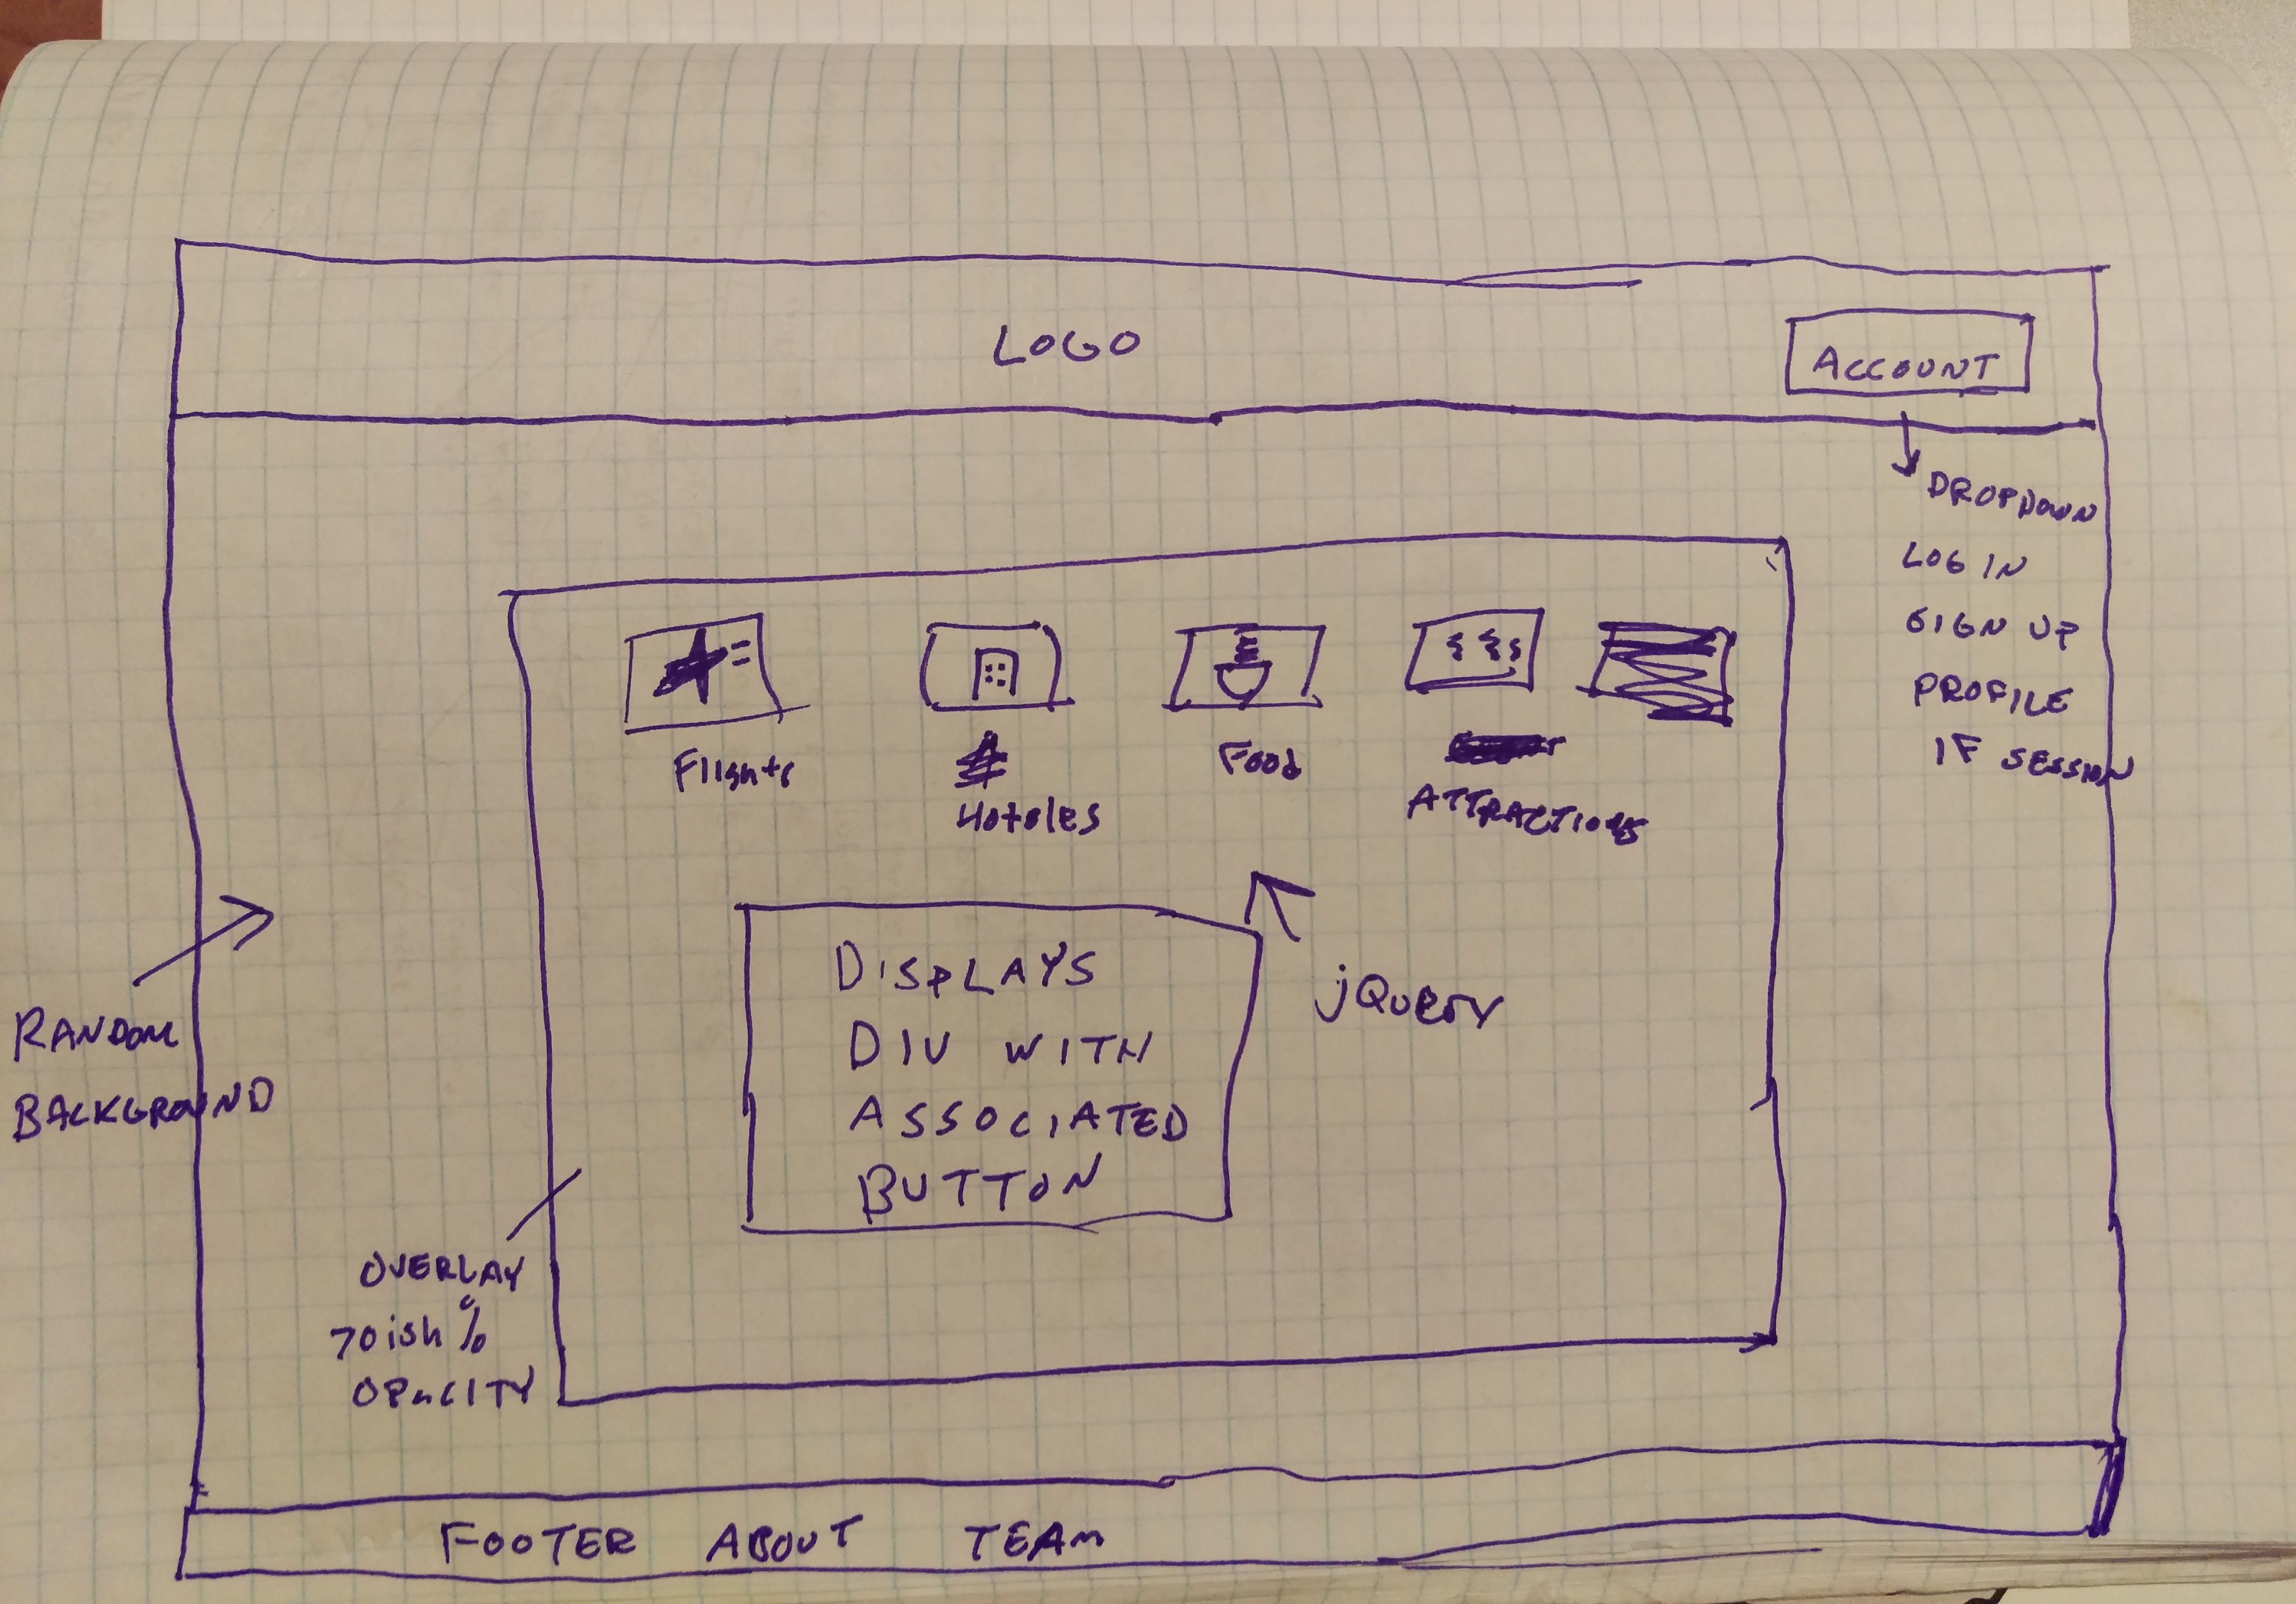 LOGO
ACCOUNT
DROPDOWN
LOG IN
SIGN UP
PROFILE
IF SESSION
Flights
Hoteles
Food
ATTRACTIONS
jQUERY
DISPLAYS
DIV WITH
ASSOCIATED
BUTTON
RANDOM
BACKGROUND
OVERLAY
70ish %
OPACITY
FOOTER ABOUT TEAM